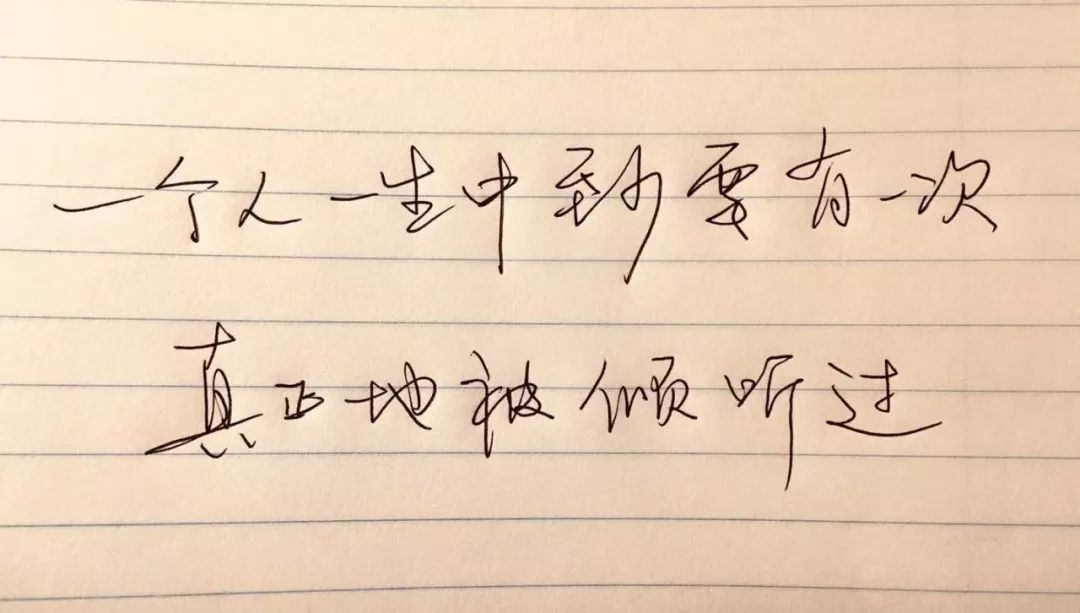 一个人一生中至少要有一次
真正地被倾听过